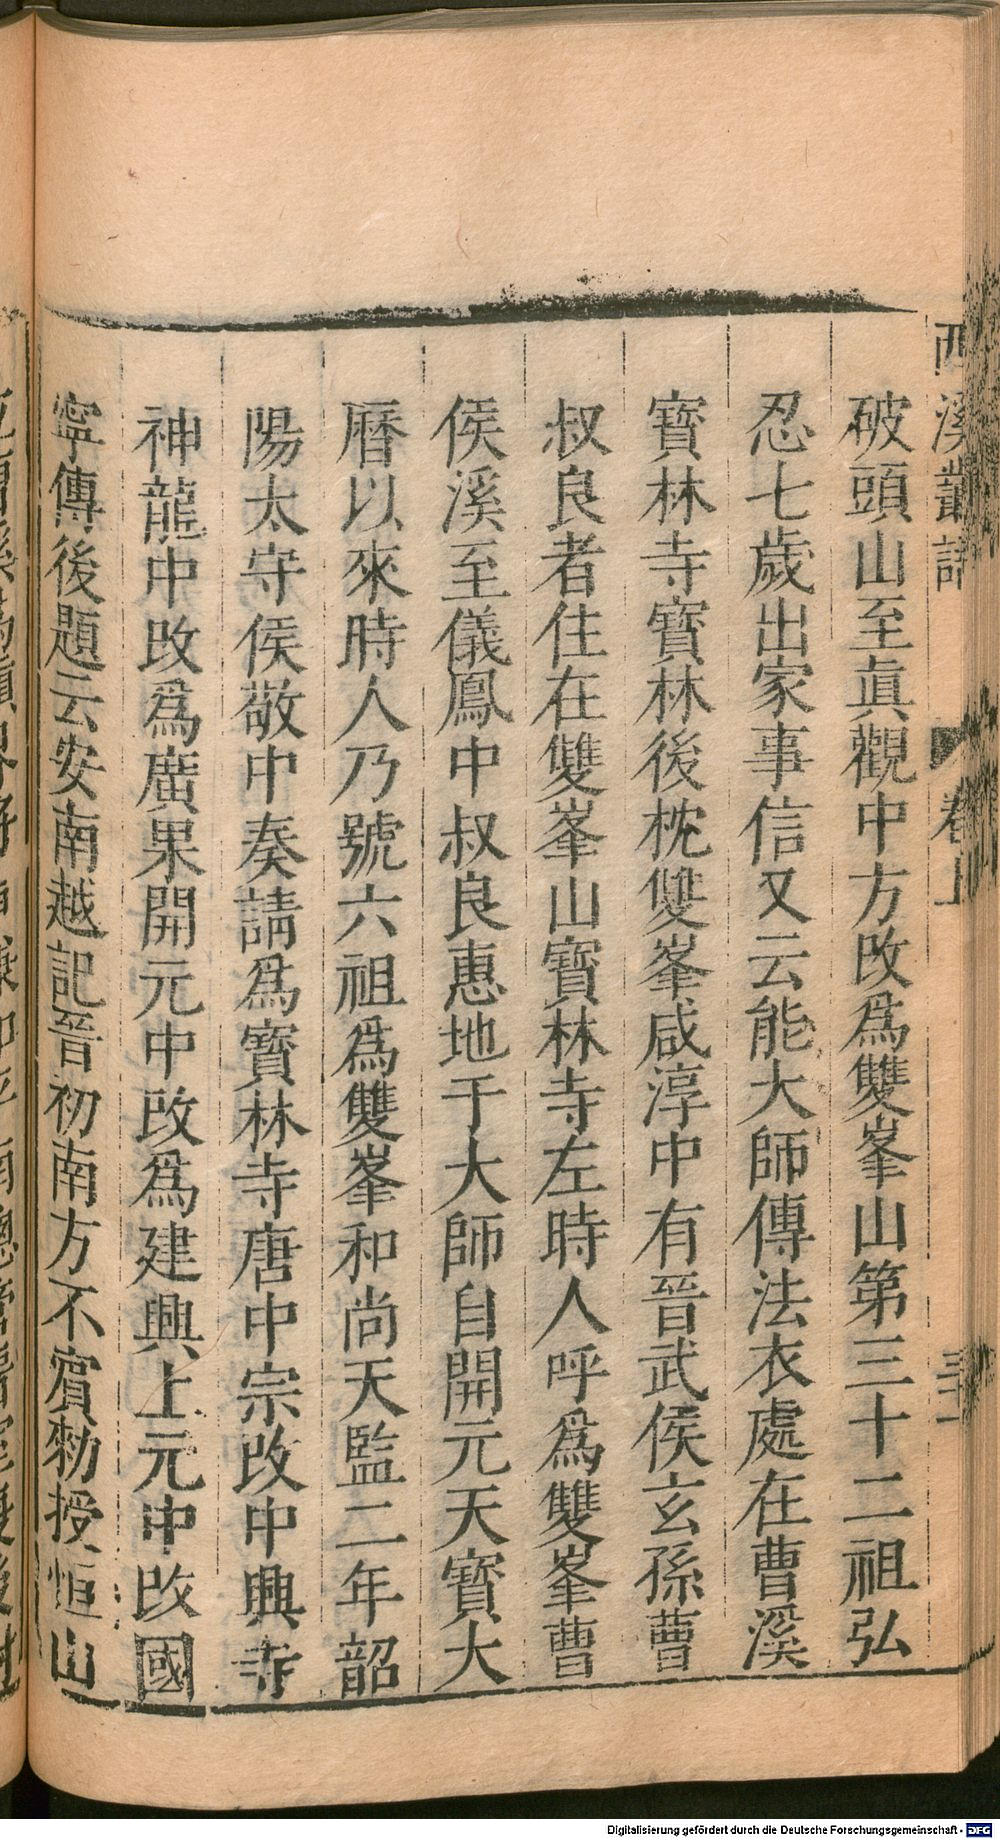 西溪叢語
卷上
三十一
破頭山至眞觀中方改爲雙峯山第三十二祖弘
忍七歲出家事信又云能大師傳法衣處在曹溪
寶林寺寶林後枕雙峯咸淳中有晉武侯玄孫曹
叔良者住在雙峯山寶林寺左時人呼爲雙峯曹
侯溪至儀鳳中叔良惠地于大師自開元天寶大
曆以來時人乃號六祖爲雙峯和尚天監二年韶
陽太守侯敬中奏請爲寶林寺唐中宗改中興寺
神龍中改爲廣果開元中改爲建興上元中改國
寧傳後題云安南越記晉初南方不賓勑授恒山
Digitalisierung gefördert durch die Deutsche Forschungsgemeinschaft - DFG